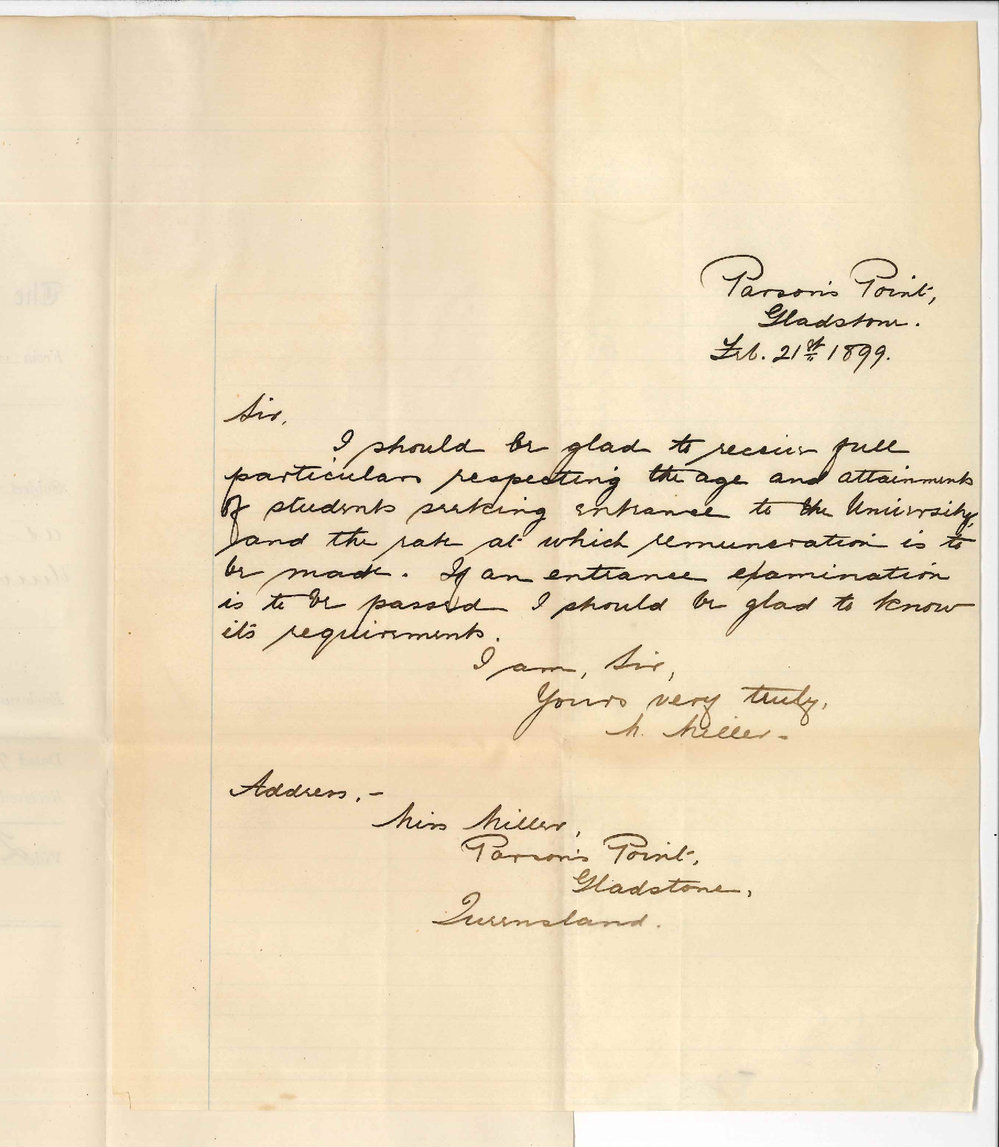 Parson's Point,
Gladstone.
Feb. 21st 1899.
Sir,
I should be glad to receive full
particulars respecting the age and attainments
of students seeking entrance to the University,
and the rate at which remuneration is to
be made. If an entrance examination
is to be passed I should be glad to know
its requirements.
I am, Sir,
Yours very truly,
M. Miller.
Address,-
Miss Miller,
Parson's Point,
Gladstone,
Queensland.
The